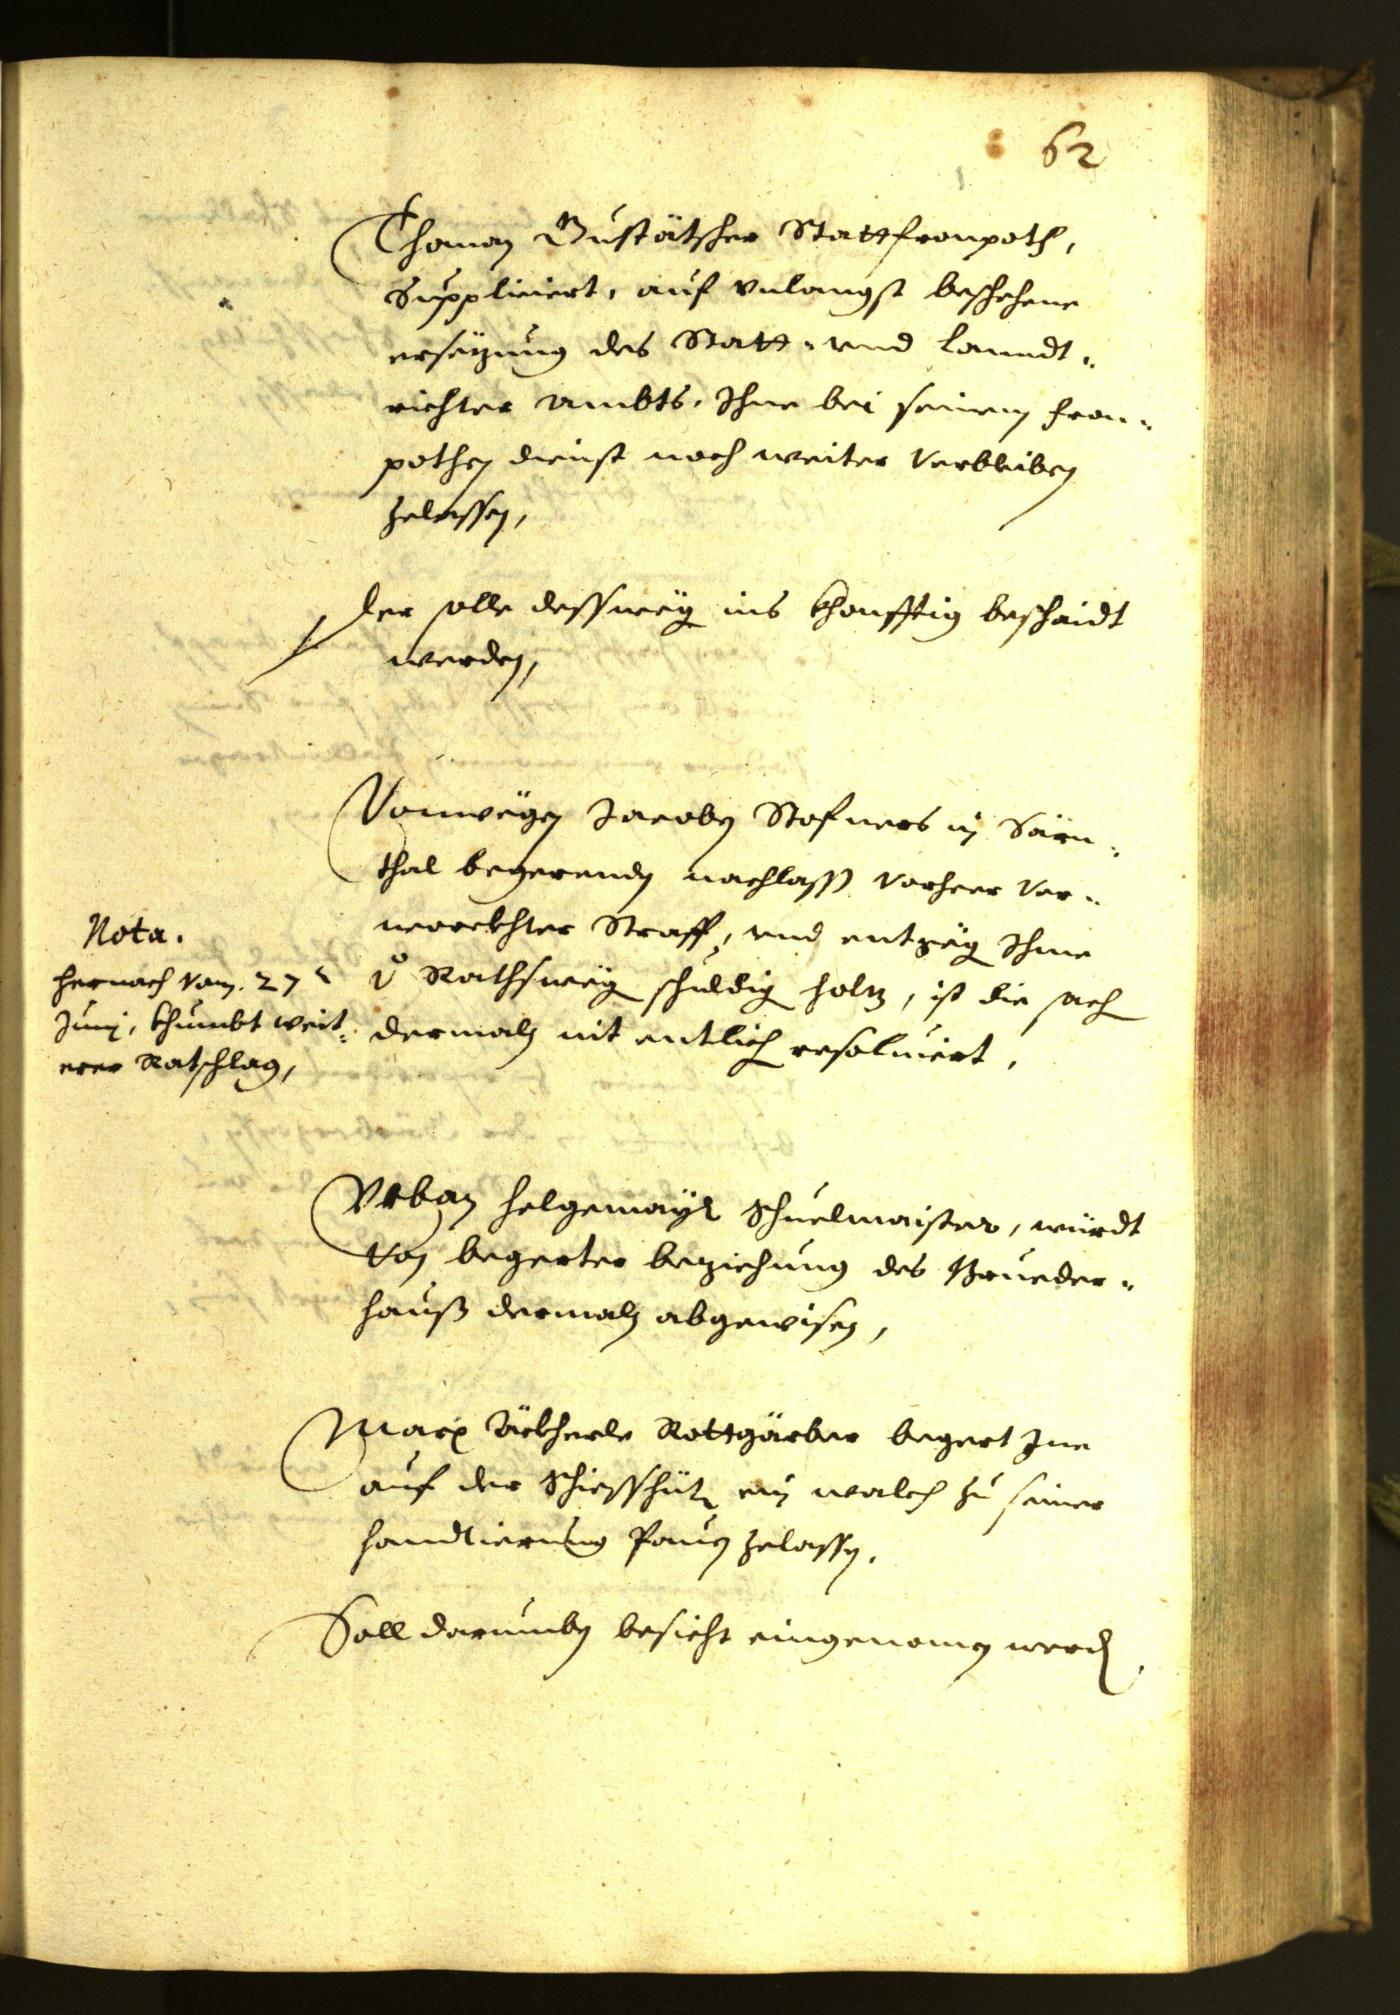 62
Thoman Gustätscher Stattfronpoth,
Suppliciert, auf vnlangst beschehene
ersëtzung des Statt- vnd Lanndt-
richter Ambts, Ihne bei seinem fron-
pothen dienst noch weiter verbleiben
zelassen,
Der solle dessweg ins khonfftig beschaidt
werden,
Vonwëgen Jacoben Stofners in Särn-
thal begerenden nachlass vorheer ver-
wirckhter Straff, vnd entgëg Ihme
Rathsweg schuldig holtz, ist die sach
dermaln nit entlich resoluiert,
Nota.
hernach vom. 27
Junj, khumbt weit-
erer Ratschlag,
Vrban Helgemayr Schuelmaister, würdt
von begerter beziehung des Brueder-
hauß dermaln abgewisen,
Marx Äckherle Rottgärber begert Ine
auf der Schiesshüt ein walch zu seiner
handtierung Pauen zelassen,
Soll darumben besicht eingenomen werden